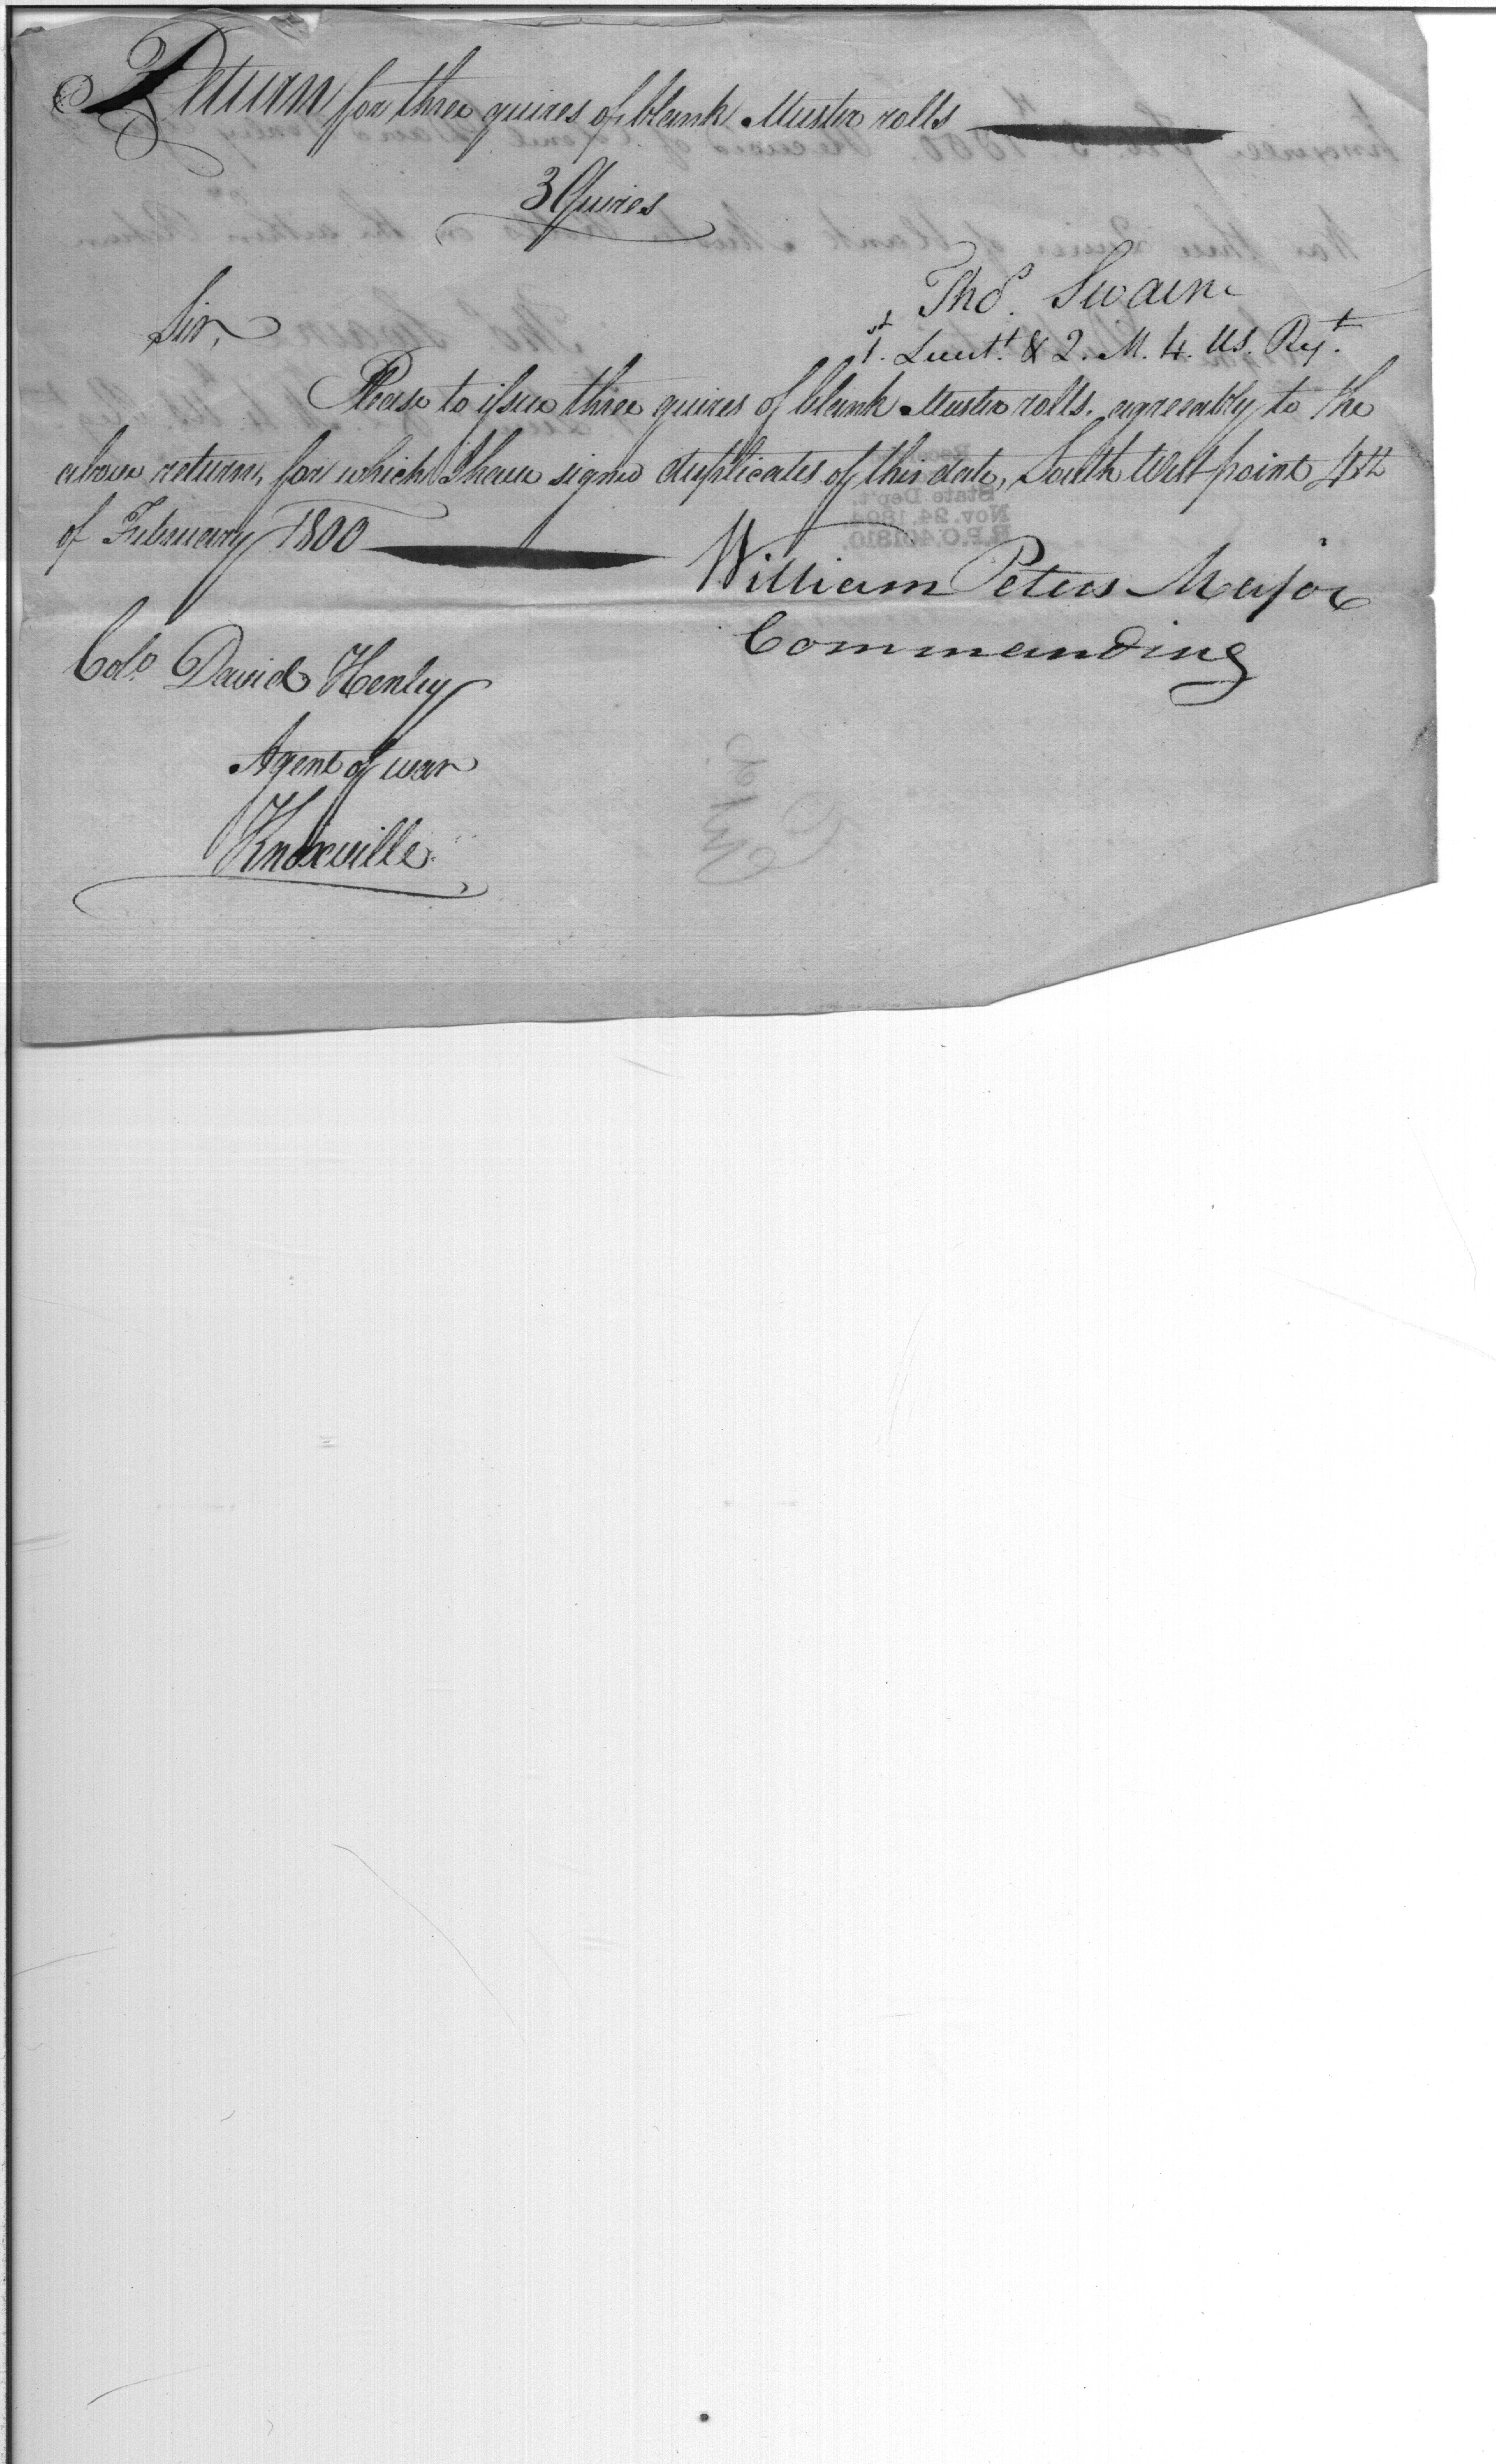 Return for three quires of blank Muster rolls
3 Quires
Thos. Swaine
1st. Lieutt. & Q. M. 4. US. Regt.
Sir,
Please to issue three quires of blank Muster rolls. agreeably to the
above return, for which I have signed duplicates of this date, South West point 4th
of February 1800
William Peters Major
Commanding
Colo. David Henley
Agent of war
Knoxville